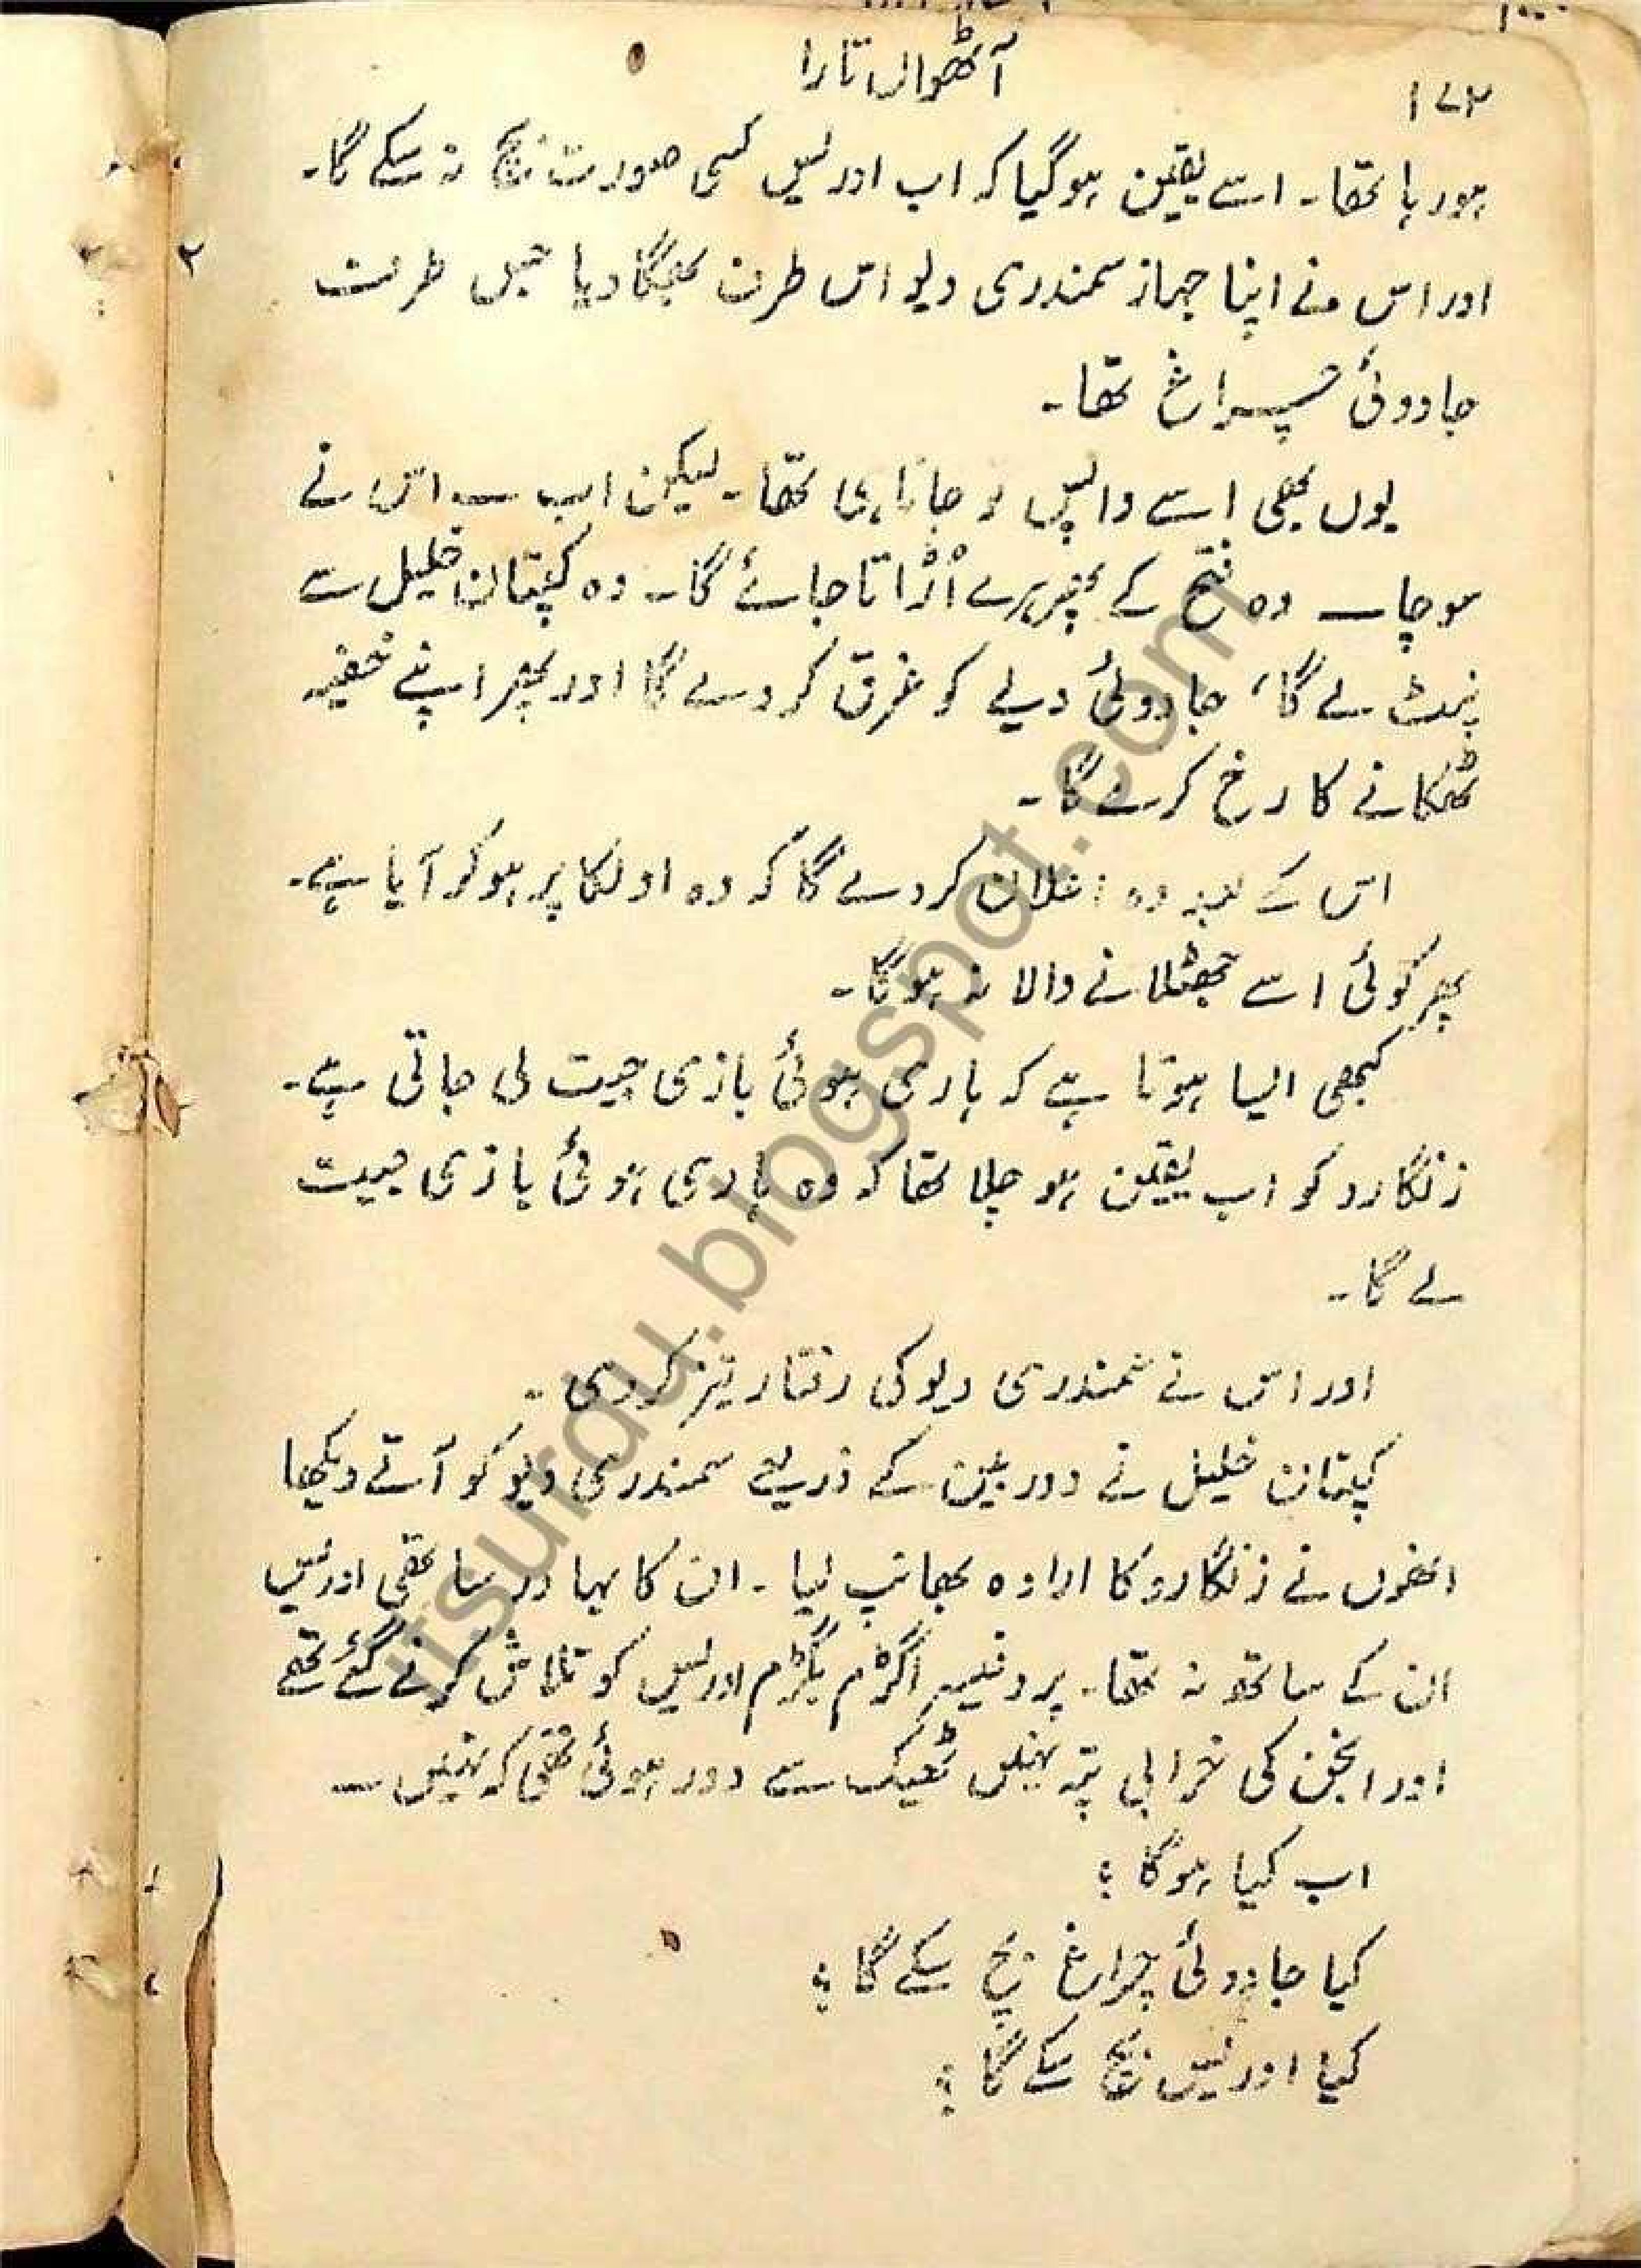 ۱۷۲
آٹھواں تارا
ہو رہا تھا۔ اسے یقین ہوگیا کہ اب ادریس کسی صورت بچ نہ سکے گا۔
اور اس نے اپنا جہاز سمندری دیو اس طرف بھگا دیا جس طرف
جادوئی چراغ تھا۔
یوں بھی اسے واپس تو جانا ہی تھا۔ لیکن اب ـــ اس نے
سوچا ـــ وہ فتح کے پھریرے اُڑاتا جائے گا۔ وہ کپتان خلیل سے
نمٹ لے گا، جادوئی دیے کو غرق کر دے گا اور پھر اپنے خفیہ
ٹھکانے کا رخ کرے گا۔
اس کے بعد وہ اعلان کر دے گا کہ وہ اولکا پر ہو کر آیا ہے۔
پھر کوئی اسے جھٹلانے والا نہ ہوگا۔
کبھی ایسا ہوتا ہے کہ ہاری ہوئی بازی جیت لی جاتی ہے۔
زنگارو کو اب یقین ہو چلا تھا کہ وہ ہاری ہوئی بازی جیت
لے گا۔
اور اس نے سمندری دیو کی رفتار تیز کر دی۔
کپتان خلیل نے دوربین کے ذریعے سمندری دیو کو آتے دیکھا
انھوں نے زنگارو کا ارادہ بھانپ لیا۔ ان کا بہادر ساتھی ادریس
ان کے ساتھ نہ تھا۔ پروفیسر اگڑم بگڑم ادریس کو تلاش کرنے گئے تھے
اور انجن کی خرابی پتہ نہیں ٹھیک سے دور ہوئی تھی کہ نہیں ـــ
اب کیا ہوگا ؟
کیا جادوئی چراغ بچ سکے گا ؟
کیا ادریس بچ سکے گا ؟
itsurdu.blogspot.com